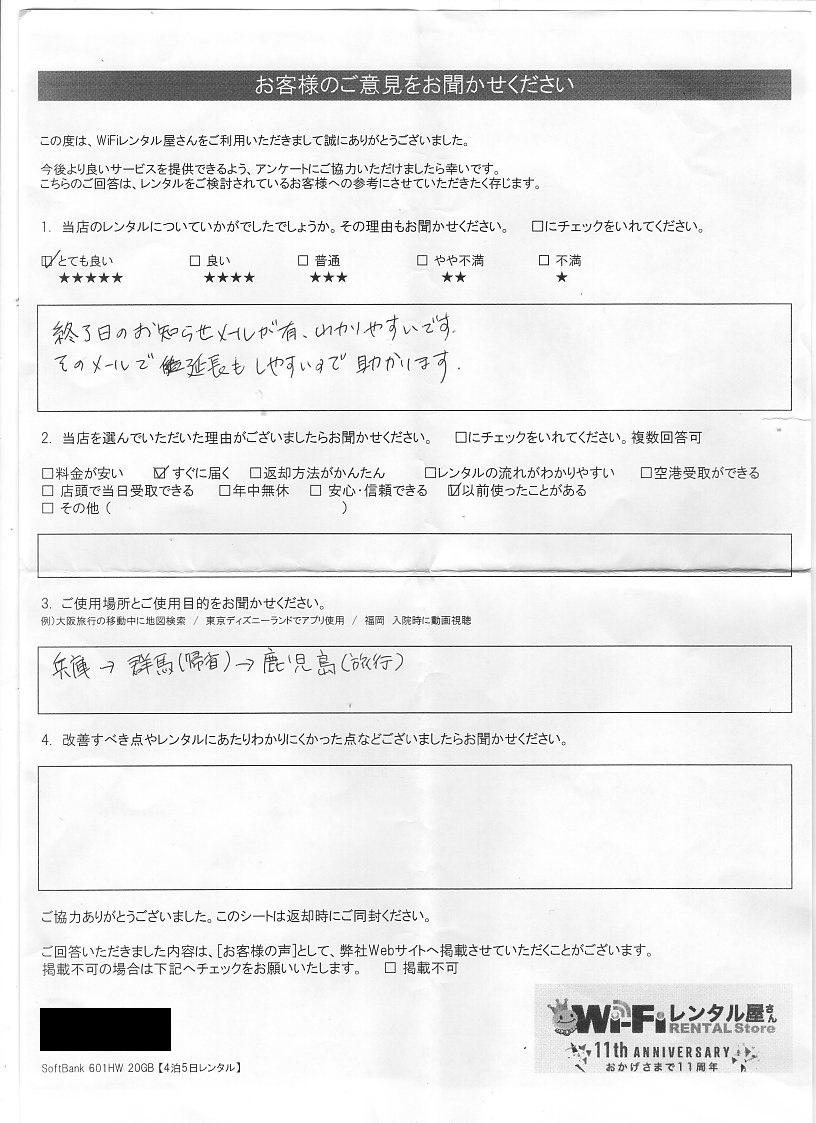 お客様のご意見をお聞かせください
この度は、WiFiレンタル屋さんをご利用いただきまして誠にありがとうございました。
今後より良いサービスを提供できるよう、アンケートにご協力いただけましたら幸いです。
こちらのご回答は、レンタルをご検討されているお客様への参考にさせていただきたく存じます。
1. 当店のレンタルについていかがでしたでしょうか。その理由もお聞かせください。 □にチェックをいれてください。
☑とても良い □ 良い □ 普通 □ やや不満 □ 不満
★★★★★ ★★★★ ★★★ ★★ ★
終了日のお知らせメールが有、わかりやすいです。
そのメールで延長もしやすいので助かります。
2. 当店を選んでいただいた理由がございましたらお聞かせください。 □にチェックをいれてください。複数回答可
□料金が安い ☑ すぐに届く □返却方法がかんたん □レンタルの流れがわかりやすい □空港受取ができる
□ 店頭で当日受取できる □年中無休 □ 安心・信頼できる ☑以前使ったことがある
□ その他 ( )
3. ご使用場所とご使用目的をお聞かせください。
例)大阪旅行の移動中に地図検索 / 東京ディズニーランドでアプリ使用 / 福岡 入院時に動画視聴
兵庫→群馬(帰省)→鹿児島(旅行)
4. 改善すべき点やレンタルにあたりわかりにくかった点などございましたらお聞かせください。
ご協力ありがとうございました。このシートは返却時にご同封ください。
ご回答いただきました内容は、[お客様の声]として、弊社Webサイトへ掲載させていただくことがございます。
掲載不可の場合は下記へチェックをお願いいたします。 □ 掲載不可
Wi-Fiレンタル屋さん
RENTAL Store
11th ANNIVERSARY
おかげさまで11周年
SoftBank 601HW 20GB【4泊5日レンタル】